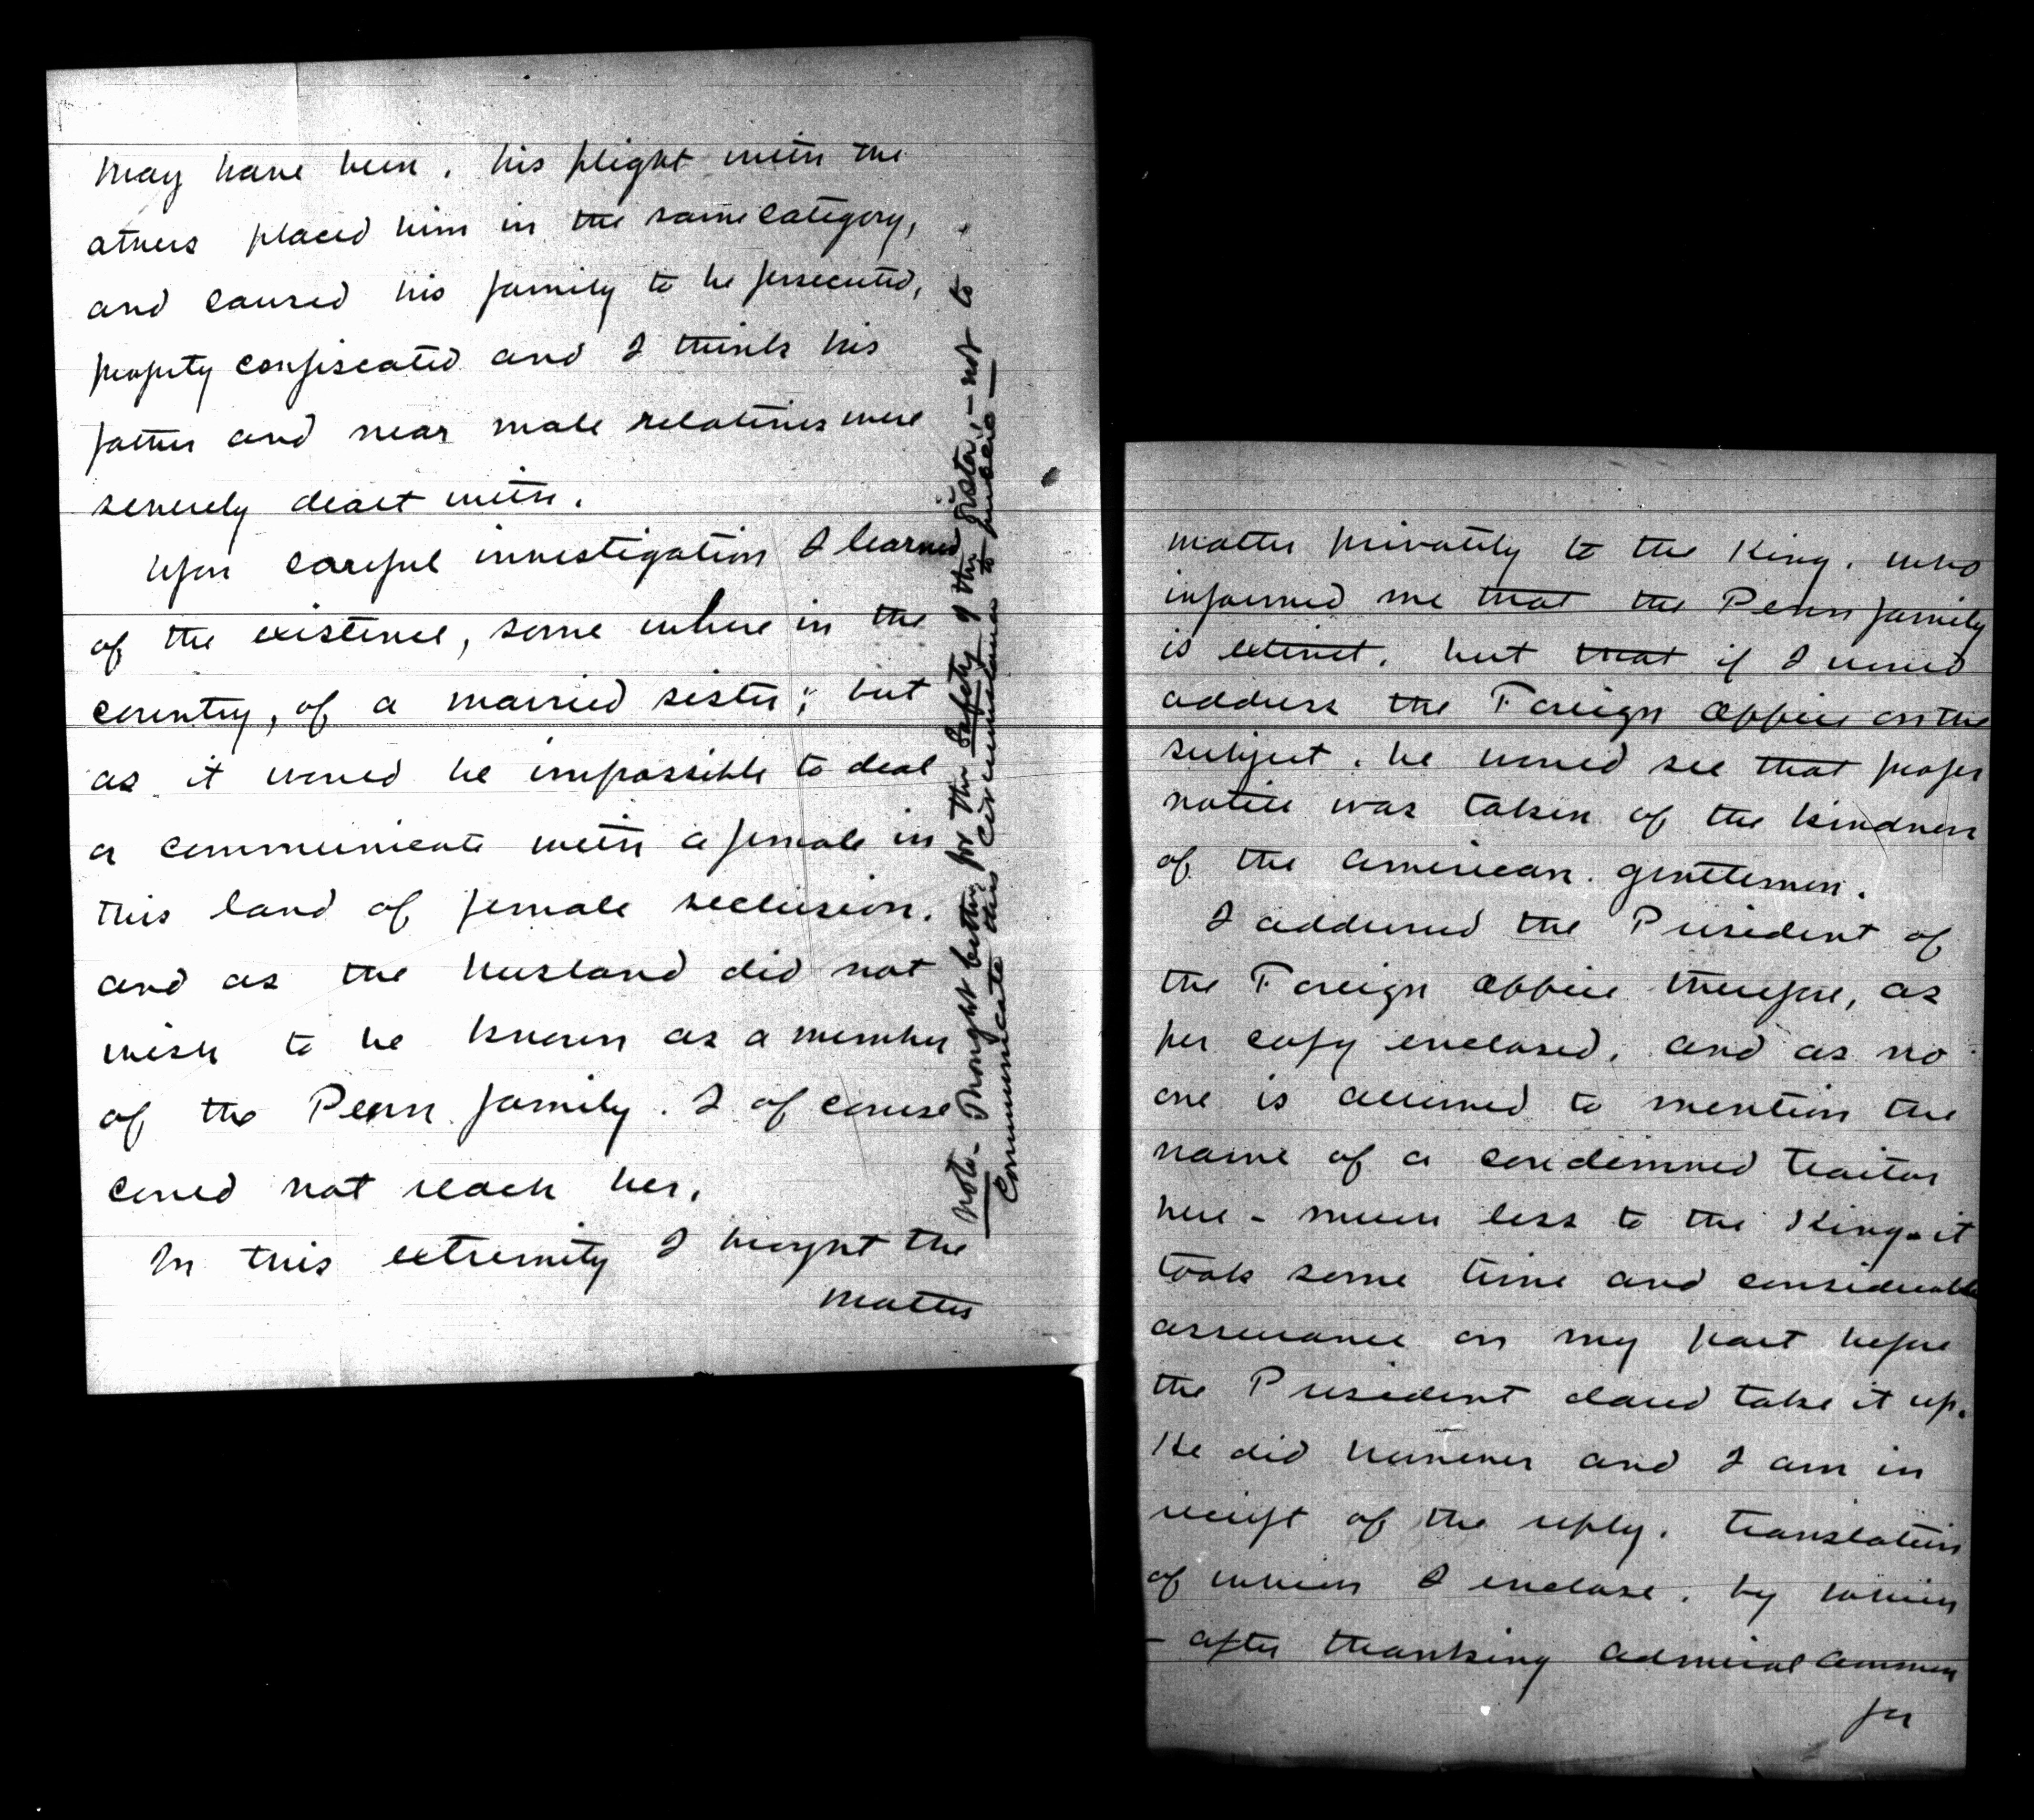 may have been, his flight with the
others placed him in the same category,
and caused his family to be persecuted,
property confiscated and I think his
father and near male relatives were
severely dealt with.
Upon careful investigation I learned
of the existence, some where in the
country, of a married sister; but
as it would be impossible to deal
or communicate with a female in
this land of female seclusion.
and as the husband did not
wish to be known as a member
of the Penn family. I of course
could not reach her.
In this extremity I brought the
matter
Note - Thought better, for the safety of the sister, - not to
communicate this circumstance to public -
matter privately to the King, who
informed me that the Penn family
is extinct, but that if I would
address the Foreign Office on the
subject, he would see that proper
notice was taken of the kindness
of the American gentlemen.
I addressed the President of
the Foreign Office therefore, as
per copy enclosed, and as no
one is allowed to mention the
name of a condemned traitor
here - much less to the King - it
took some time and considerable
assurance on my part before
the President dared take it up.
He did however and I am in
receipt of the reply, translation
of which I enclose, by which
- after thanking Admiral Ammen
for